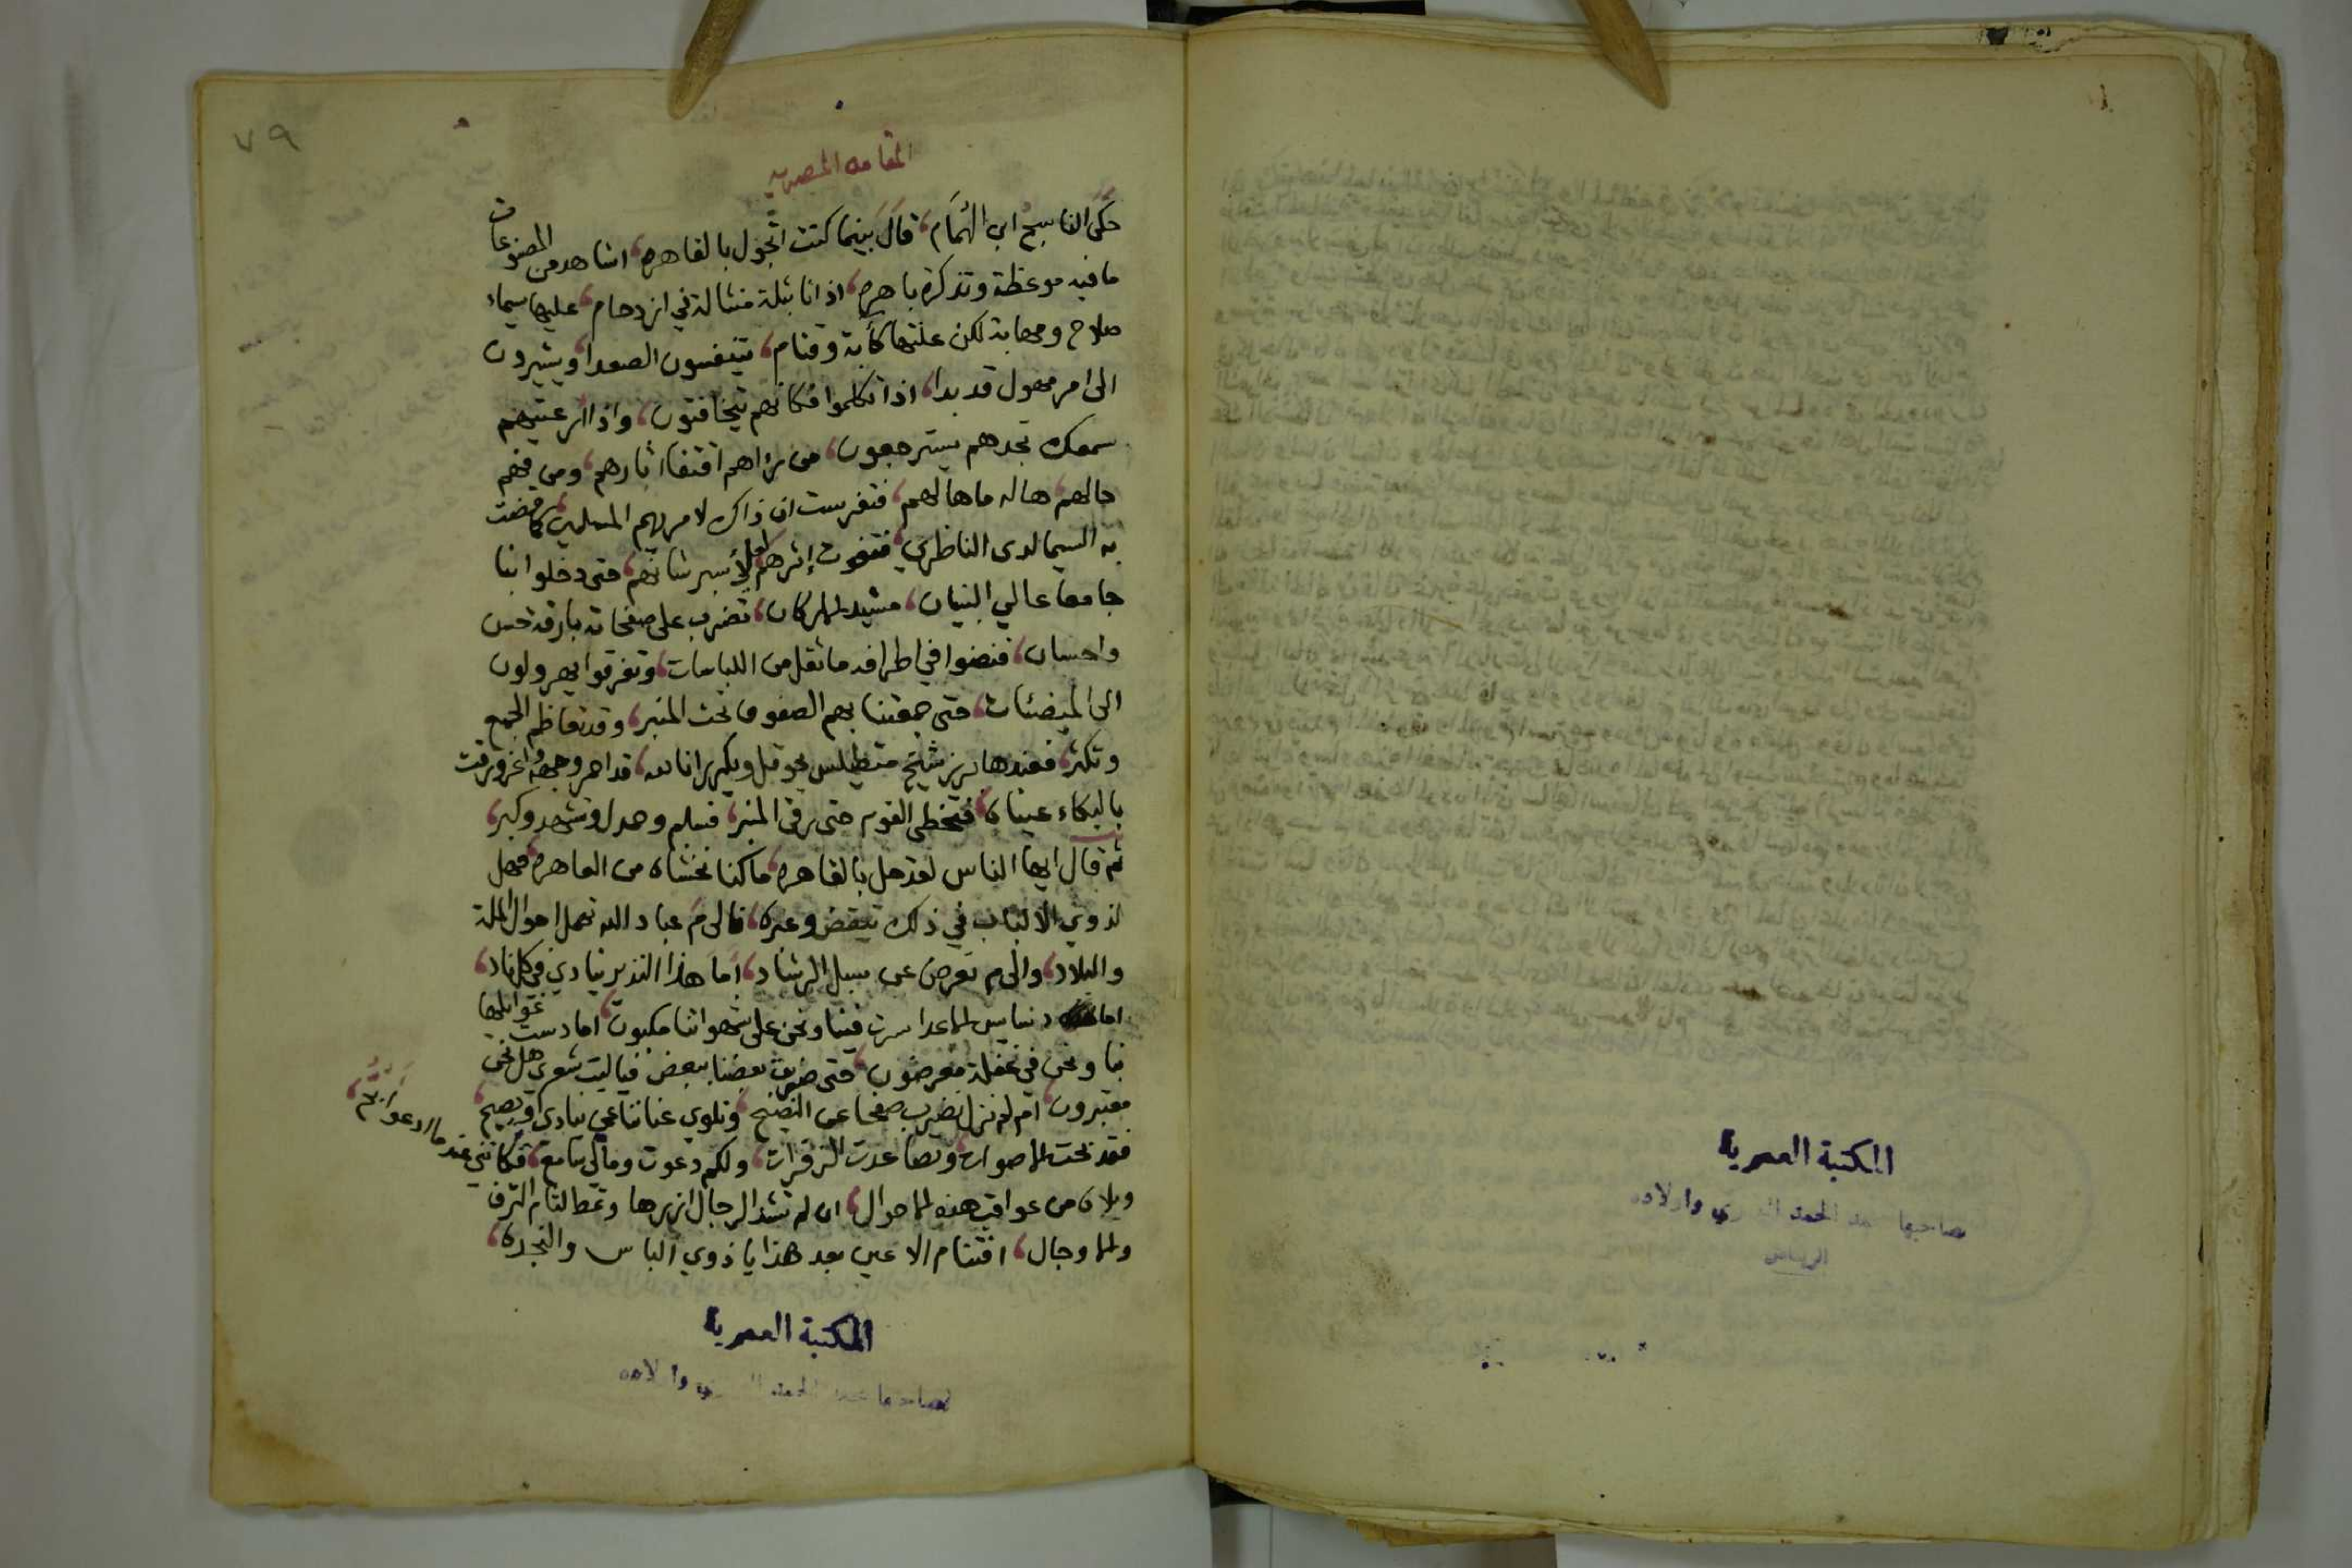 المكتبة العصرية
لصاحبها عبد وأولاده
الرياض
٧٩
المقامه المصريه
حكى الناسج ابن الهمام، قال بينما كنت اتجول بالقاهره، اشاهد من المصنوعات
ما فيه موعظة وتذكرة باهره، اذ انا بثلة منثالة في ازدحام، عليها سيماء
صلاح ومهابة لكن علتها كأبة وقتام، يتنفسون الصعدا، ويشيرون
الى امر مهول قد بدا، اذا تكلموا فكانهم يتخافتون، واذا ارعيتهم
سمعك تجدهم يسترجعون، من يراهم اقتفا اثارهم، ومن فهم
حالهم هاله ما هالهم، فتفرست ان ذاك لامر يهم المسلمين، كما قضت
به السيما لدى الناظرين، فقفوت إثرهم لأسبر شانهم، حتى دخلوا بنا
جامعا عالي البنيان، مشيد الاركان، تضرب على صفحاته بارقة حسن
واحسان، فنضوا في اطرافه ما ثقل من اللباسات، وتفرقوا يهرولون
الى الميضئات، حتى جمعتنا بهم الصفوف تحت المنبر، وقد تعاظم الجمع
وتكثر، فعندها برز شيخ متطيلس يحوقل ويكرر انا لله، قد احمر وجهه واغرورقت
بالبكاء عيناه، فتخطى القوم حتى رقى المنبر، فسلم وحمدل وتشهد وكبر،
ثم قال ايها الناس لقد حل بالقاهره، ما كنا نخشاه من العاهره، فهل
لذوي الالباب في ذلك تيقض وعبره، فالى م عباد الله نهمل احوال الملة
والبلاد، والى م نعرض عن سبل الرشاد، أما هذا النذير ينادي في كل ناد،
اما دسايس الاعدا سرت فينا ونحن على شهواتنا مكبون، اما دست غوايلها
بنا ونحن في غفلة معرضون، حتى ضربت بعضنا ببعض فياليت شعري هل نحن
معتبرون، ام لم نزل نضرب صفحا عن النصح، ونلوي عناننا عمن ينادي ويصيح،
فقد بحت الاصوات، وتصاعدت الزفرات، ولكم دعوت ومالي سامع، فكانني عندما ادعو
ويلاه من عواقب هذه الاحوال، ان لم تشد الرجال ازرها وتمط لثام الترف
والاوجال، افتنام الاعين بعد هذا يا ذوي الباس والنجده،
المكتبة العصرية
لصاحبها وأولاده